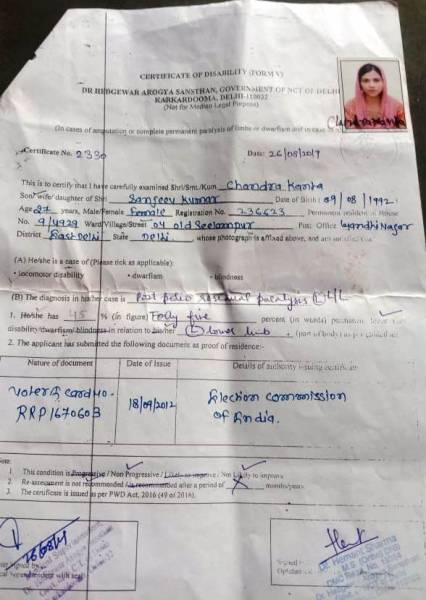 CERTIFICATE OF DISABILITY (FORM V)
DR HEDGEWAR AROGYA SANSTHAN, GOVERNMENT OF NCT OF DELHI
KARKARDOOMA, DELHI-110032
(Not for Medico Legal Purpose)
(In cases of amputation or complete permanent paralysis of limbs or dwarfism and in case of
Certificate No. 2330 Date: 26/08/2019
This is to certify that I have carefully examined Shri/Smt./Kum. Chandra Kanta
Son/wife/daughter of Shri Sanjeev Kumar Date of Birth: 09/08/1992
Age 27 years, Male/Female Female Registration No. 236623 Permanent resident of House
No. 9/4929 Ward/Village/Street 04 old Seelampur Post Office Gandhi Nagar
District East Delhi State Delhi whose photograph is affixed above, and am satisfied
(A) He/she is a case of (Please tick as applicable):
• locomotor disability • dwarfism • blindness
(B) The diagnosis in his/her case is Post polio residual paralysis (L) L/L
1. He/she has 45 % (in figure) Forty five percent (in words) permanent
disability/dwarfism/blindness in relation to his/her (L) lower limb (part of body) as per guidelines
2. The applicant has submitted the following document as proof of residence:-
Nature of document Date of Issue Details of authority issuing certificate
Voter I card No. RRP1670603 18/09/2012 Election commission of India.
Note:
1. This condition is Progressive / Non Progressive / Likely to improve / Not Likely to improve
2. Re-assessment is not recommended / is recommended after a period of X months/years
3. The certificate is issued as per PWD Act, 2016 (49 of 2016).
Dr. Hemant Sharma